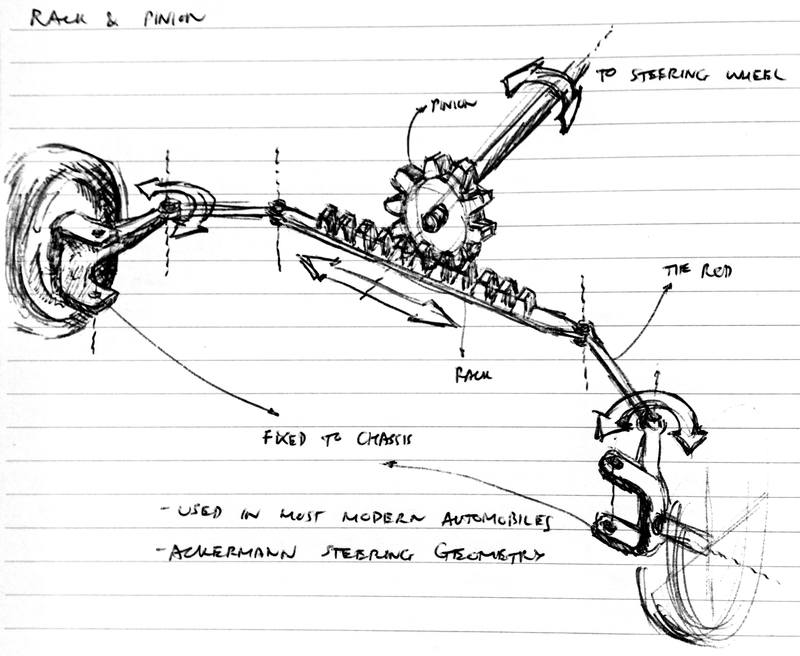 RACK & PINION
TO STEERING WHEEL
PINION
TIE ROD
RACK
FIXED TO CHASSIS
- USED IN MOST MODERN AUTOMOBILES
- ACKERMANN STEERING GEOMETRY